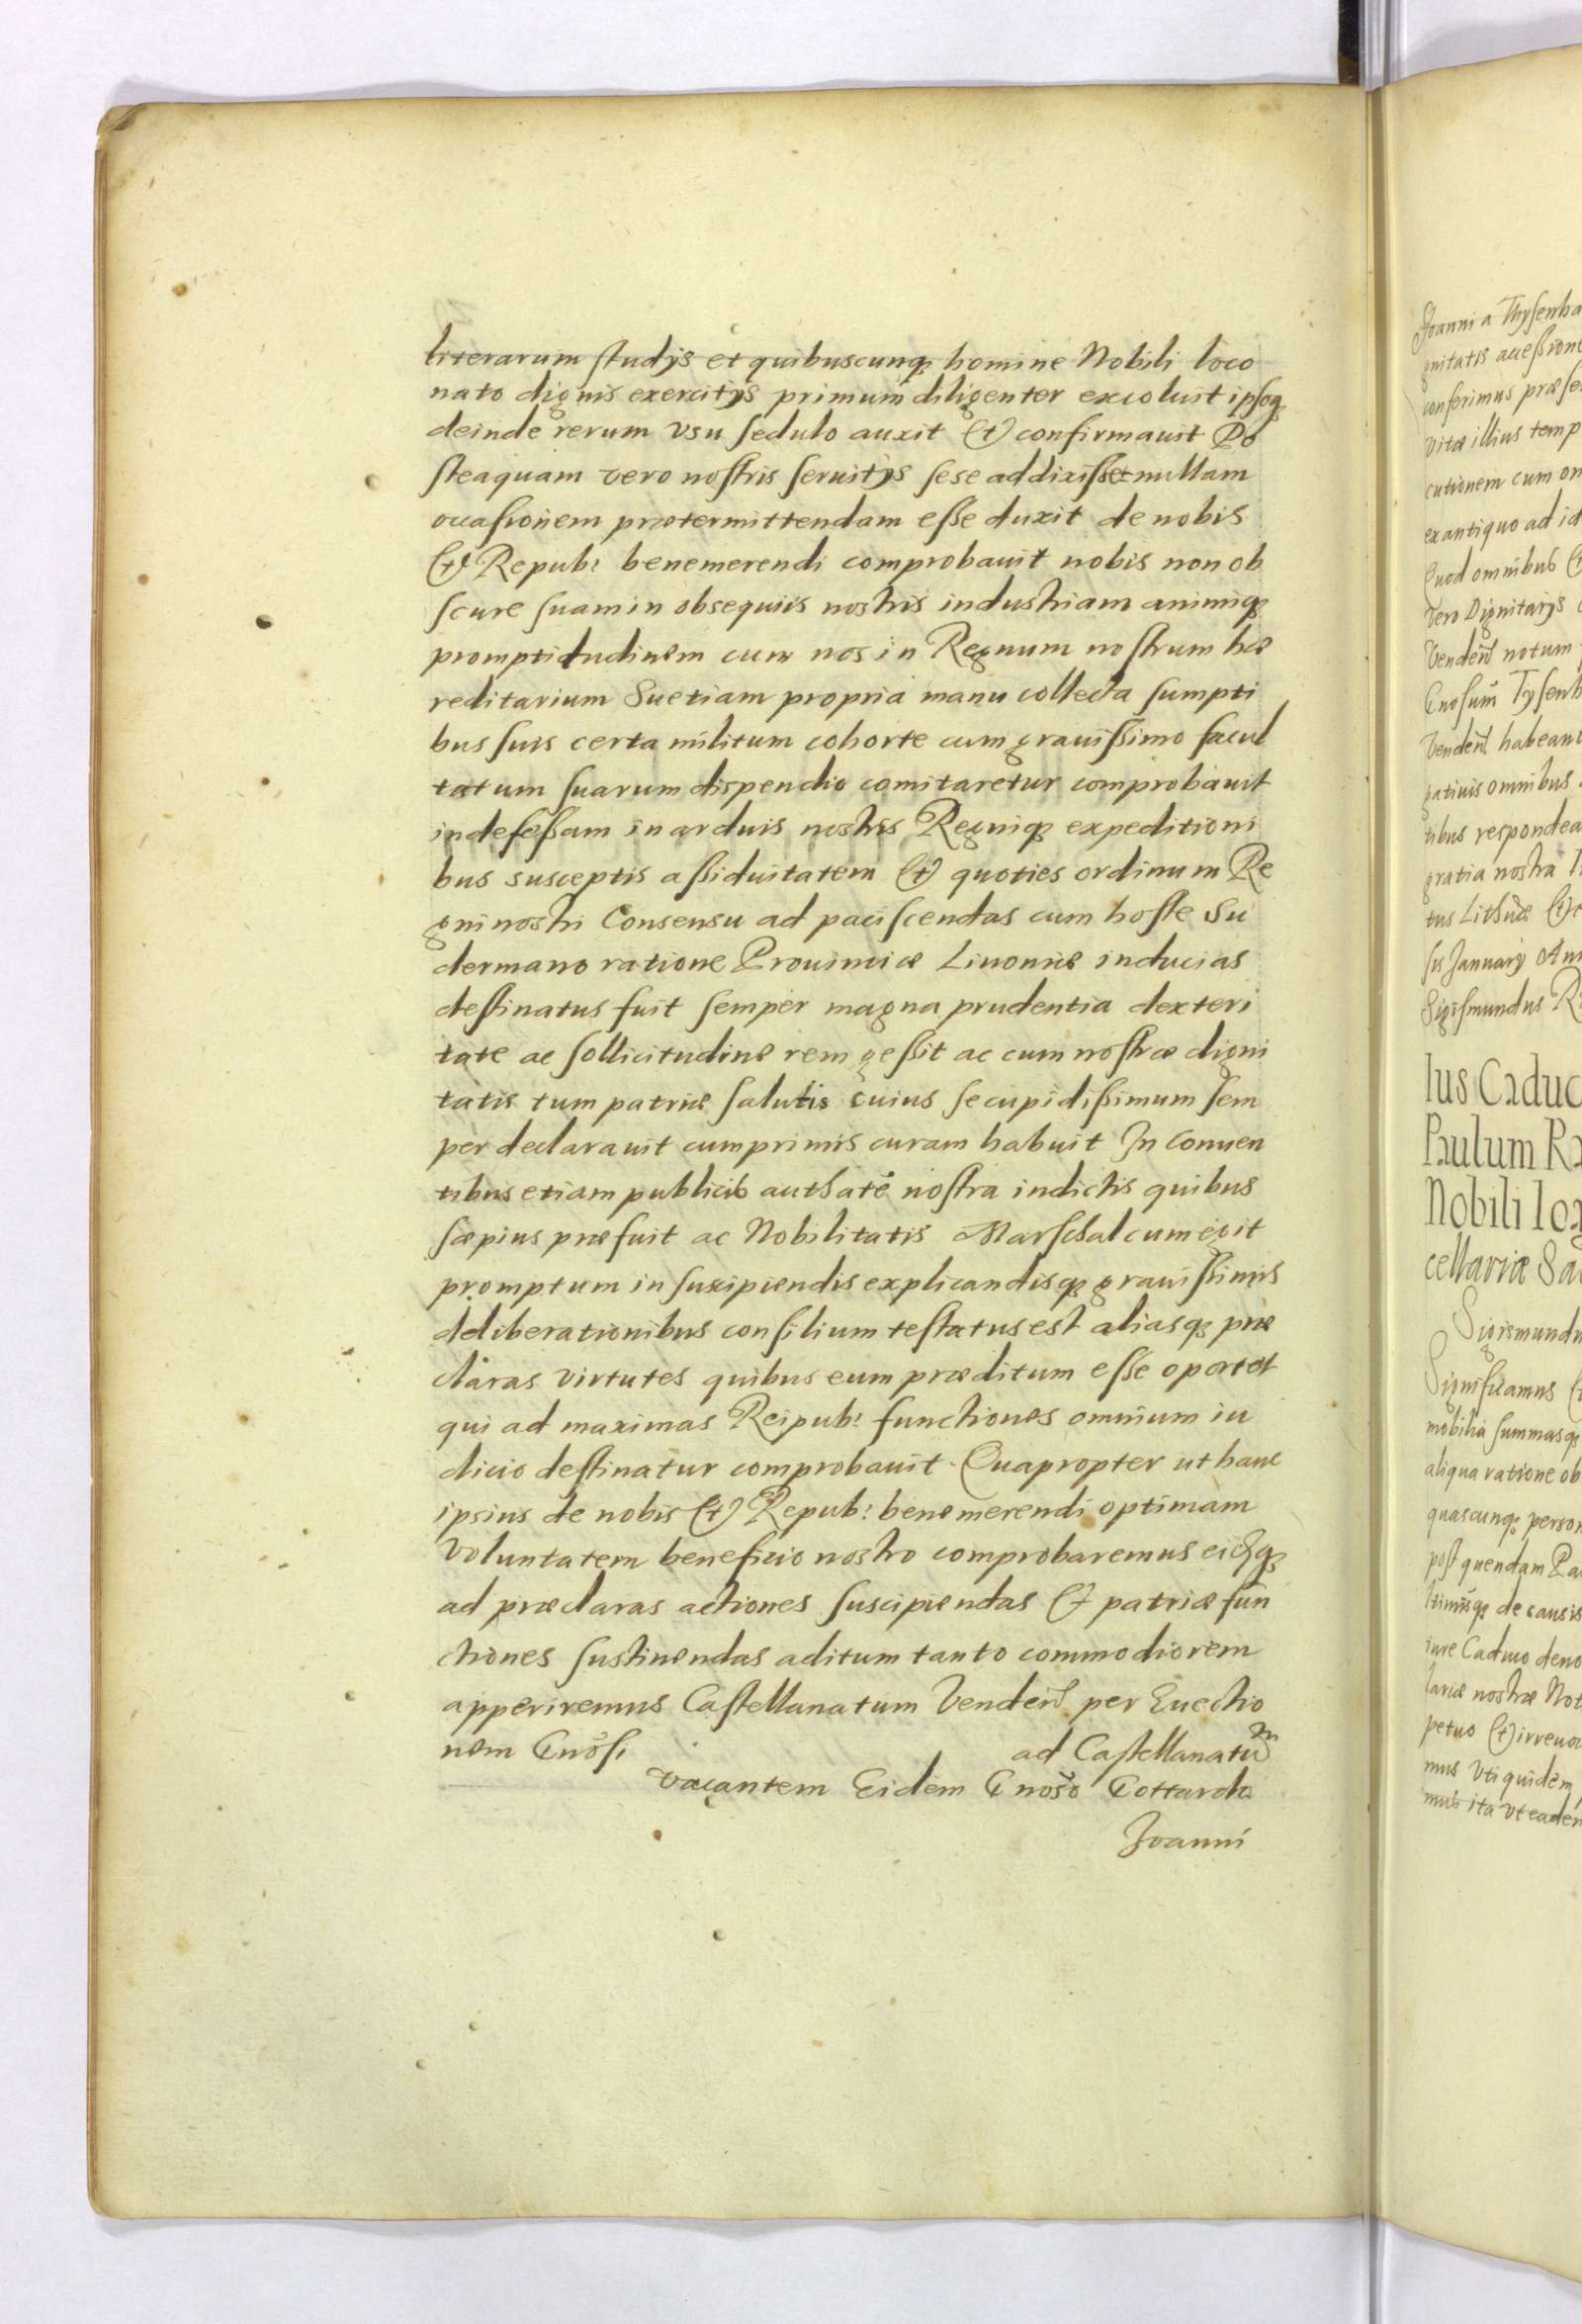 literarum studijs et quibuscunq; homine Nobili loco
nato dignis exercitijs primum diligenter excoluit ipsoq;
deinde rerum vsu sedulo auxit et confirmauit Po
steaquam vero nostris seruitijs sese addixisset nullam
occasionem prætermittendam esse duxit de nobis
et Repub: benemerendi comprobauit nobis non ob
scure suam in obsequiis nostris industriam animiq;
promptitudinem cum nos in Regnum nostrum hæ
reditarium Suetiam propria manu collecta sumpti
bus suis certa militum cohorte cum grauissimo facul
tatum suarum dispendio comitaretur comprobauit
indefessam in arduis nostris Regniq; expeditioni
bus susceptis assiduitatem et quoties ordinum Re
gni nostri Consensu ad paciscendas cum hoste Su
dermano ratione Prouinciæ Liuoniæ inducias
destinatus fuit semper magna prudentia dexteri
tate ac sollicitudine rem gessit ac cum nostræ digni
tatis tum patriæ salutis cuius se cupidissimum sem
per declarauit cumprimis curam habuit In Conuen
tibus etiam publicis authatẽ nostra indictis quibus
sæpius præfuit ac Nobilitatis Marschalcum egit
promptum in suscipiendis explicandisq; grauissimis
deliberationibus consilium testatus est aliasq; præ
claras virtutes quibus eum præditum esse oportet
qui ad maximas Reipub: functiones omnium iu
dicio destinatur comprobauit. Quapropter ut hanc
ipsius de nobis et Repub: benemerendi optimam
voluntatem beneficio nostro comprobaremus eidq;
ad præclaras actiones suscipiendas et patriæ fun
ctiones sustinendas aditum tanto commodiorem
apperiremus Castellanatum Venden per Euectio
nem Gnosi ad Castellanatum
vacantem Eidem Gnoso Gottardo
Joanni
Joanni a Thysenha
gnitatis accessione
conferimus præse
vitæ illius temp
cutionem cum om
ex antiquo ad id
Quod omnibus
Vero Dignitarijs
Venden notum
Gnosum Tysenh
Venden habean
gatiuis omnibus
tibus respondea
gratia nostra
tus Lithuæ
sis January An
Sigismundus R
Ius Caduc
Paulum R
Nobili Io
cellariæ Sa
Sigismundu
Significamus
mobilia summasq;
aliqua ratione ob
quascunq; person
post quendam Pa
ltimisq; de causis
iure Caduco deuo
lariæ nostræ Not
petuo et irreuo
mus Vti quidem
mus ita vt eadem